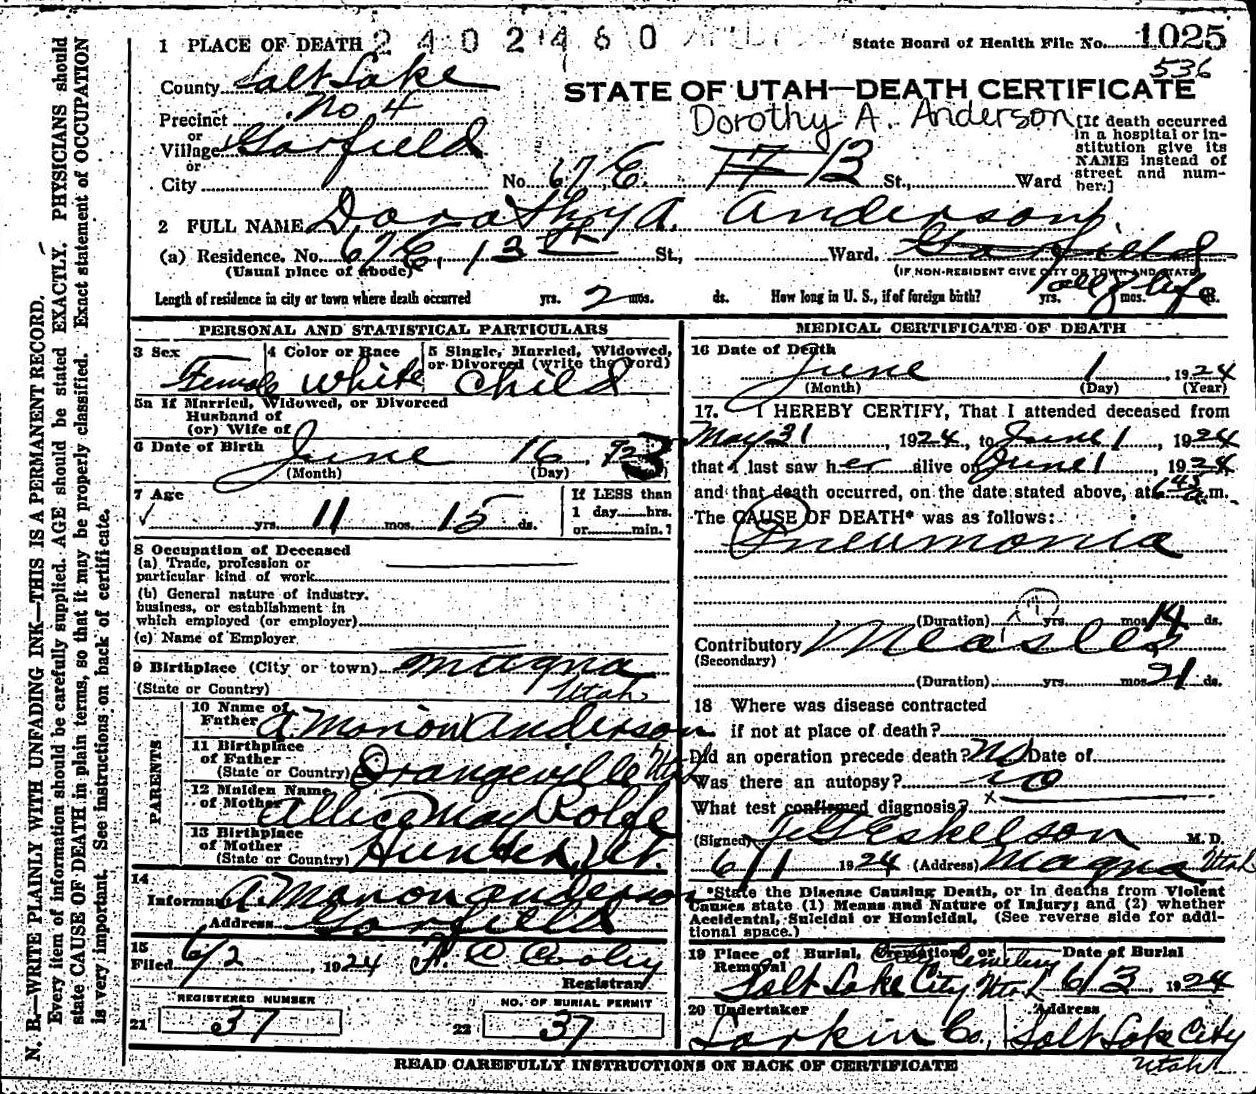 N. B.—WRITE PLAINLY WITH UNFADING INK—THIS IS A PERMANENT RECORD.
Every item of information should be carefully supplied. AGE should be stated EXACTLY. PHYSICIANS should
state CAUSE OF DEATH in plain terms, so that it may be properly classified. Exact statement of OCCUPATION
is very important. See instructions on back of certificate.
1 PLACE OF DEATH 2402460
State Board of Health File No. 1025
536
County Salt Lake
STATE OF UTAH—DEATH CERTIFICATE
Precinct No 4
Dorothy A. Anderson
or
Village Garfield
or
City No 67 E. 17 13 St., Ward
[If death occurred
in a hospital or in-
stitution give its
NAME instead of
street and num-
ber.]
2 FULL NAME Dorothy A. Anderson
(a) Residence. No. 67 E. 13 St., Ward. Garfield
(Usual place of abode) (IF NON-RESIDENT GIVE CITY OR TOWN AND STATE)
Length of residence in city or town where death occurred yrs. 2 mos. ds. How long in U. S., if of foreign birth? yrs. all of life mos. ds.
PERSONAL AND STATISTICAL PARTICULARS
3 Sex Female
4 Color or Race White
5 Single, Married, Widowed,
or Divorced (write the word)
Child
5a If Married, Widowed, or Divorced
Husband of
(or) Wife of
6 Date of Birth June 16, 923
(Month) (Day) (Year)
7 Age
yrs. 11 mos. 15 ds.
If LESS than
1 day hrs.
or min.?
8 Occupation of Deceased
(a) Trade, profession or
particular kind of work
(b) General nature of industry,
business, or establishment in
which employed (or employer)
(c) Name of Employer
9 Birthplace (City or town) Magna
(State or Country) Utah
PARENTS
10 Name of
Father A. Marion Anderson
11 Birthplace
of Father
(State or Country) Orangeville Utah
12 Maiden Name
of Mother Allice May Rolfe
13 Birthplace
of Mother
(State or Country) Hunter, Ut.
14
Informant A. Marion Anderson
Address Garfield
15
Filed 6/2, 1924
Registrar
REGISTERED NUMBER
21 37
NO. OF BURIAL PERMIT
22 37
MEDICAL CERTIFICATE OF DEATH
16 Date of Death
June 1, 1924
(Month) (Day) (Year)
17. I HEREBY CERTIFY, That I attended deceased from
May 31, 1924, to June 1, 1924
that I last saw her alive on June 1, 1924
and that death occurred, on the date stated above, at 6 45 a.m.
The CAUSE OF DEATH* was as follows:
Pneumonia
(Duration) yrs. mos. 14 ds.
Contributory Measles
(Secondary)
(Duration) yrs. mos. 21 ds.
18 Where was disease contracted
if not at place of death?
Did an operation precede death? No Date of
Was there an autopsy? no
What test confirmed diagnosis?
(Signed) Eskelson M. D.
6/1 1924 (Address) Magna Utah
*State the Disease Causing Death, or in deaths from Violent
Causes state (1) Means and Nature of Injury; and (2) whether
Accidental, Suicidal or Homicidal. (See reverse side for addi-
tional space.)
19 Place of Burial, Cremation or
Removal
Cemetery
Salt Lake City Utah
Date of Burial
6/3, 1924
20 Undertaker
Larkin Co.,
Address
Salt Lake City
Utah
READ CAREFULLY INSTRUCTIONS ON BACK OF CERTIFICATE